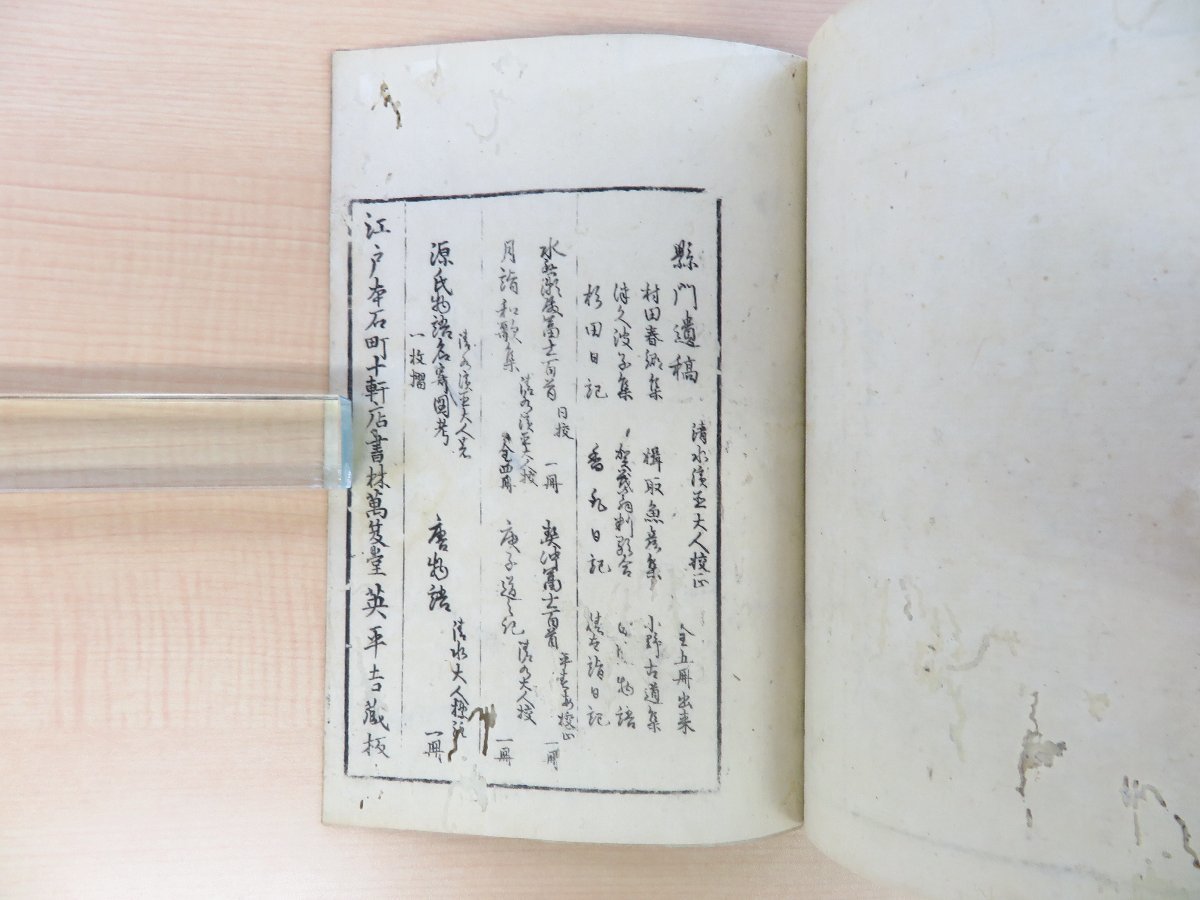 縣門遺稿 清水濱臣大人校正 全五冊出来
村田春郷集 楫取魚彦集 小野古道集
津久波子集 賀茂翁判歌合 物語
杉田日記 香取日記 詣日記
水無瀬殿富士百首 同校 一冊 契沖富士百首 校正 一冊
月詣和歌集 清水濱臣大人校 全四冊 庚子道之記 清水大人校 一冊
源氏物語名寄図考 清水濱臣大人著 一枚摺 唐物語 清水大人標註 一冊
江戸本石町十軒店書林萬笈堂英平吉蔵板